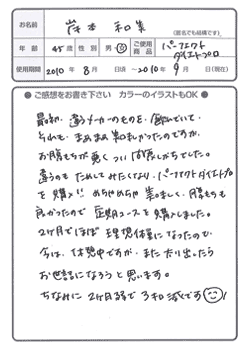 お名前 岸本 和美 (匿名でも結構です)
年齢 45歳 性別 男・女 ご使用商品 パーフェクトダイエットプロ
使用期間 2010年8月 日頃 ~2010年9月(現在)
● ご感想をお書き下さい カラーのイラストもOK ●
最初、違うメーカーのものを飲んでいて、
それも、まぁまぁ美味しかったのですが、
お腹もちが悪くつい間食しがちでした。
違うのもためしてみたくなり、パーフェクトダイエットプロ
を購入!! めちゃめちゃ美味しく、腹もちも
良かったので定期コースを購入しました。
2ヶ月でほぼ理想体重になったので、
今は、休憩中ですが、また太り出したら
お世話になろうと思います。
ちなみに2ヶ月弱で3キロ減です